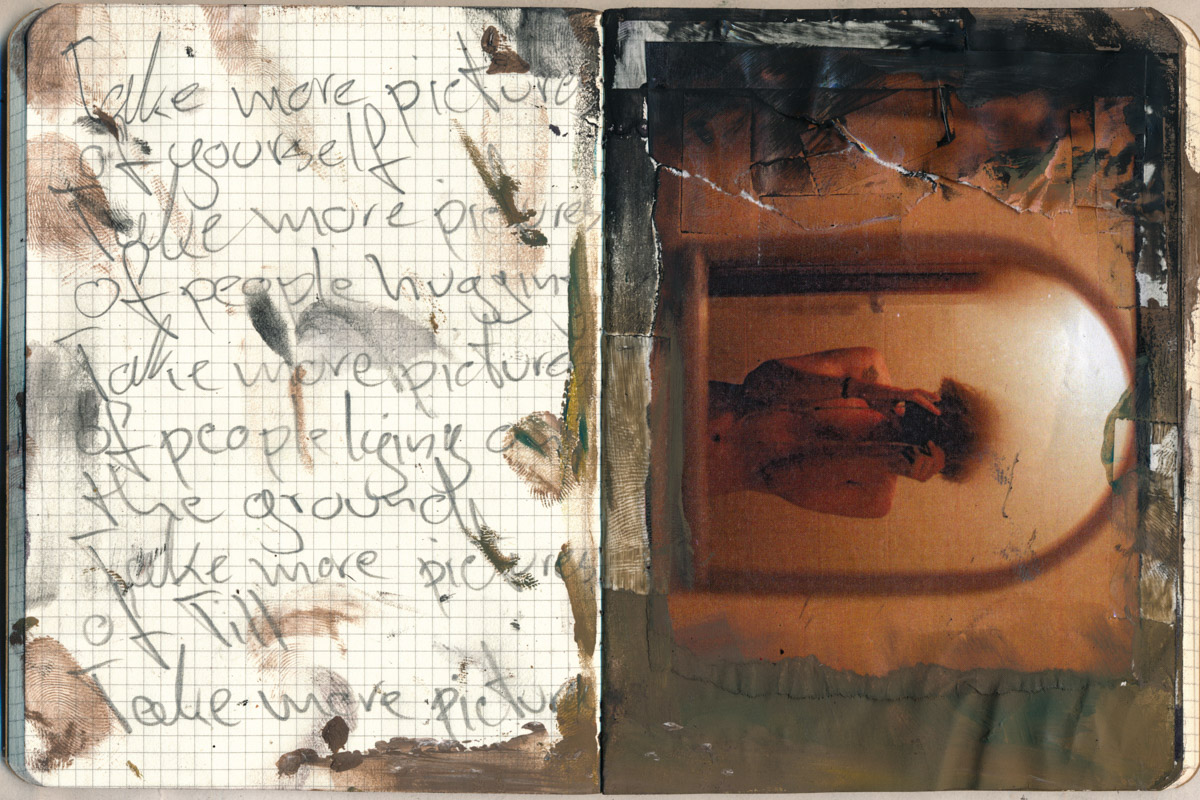 Take more pictures
of yourself
Take more pictures
of people hugging
Take more pictures
of people lying on
the ground
Take more pictures
of Till
Take more pictur